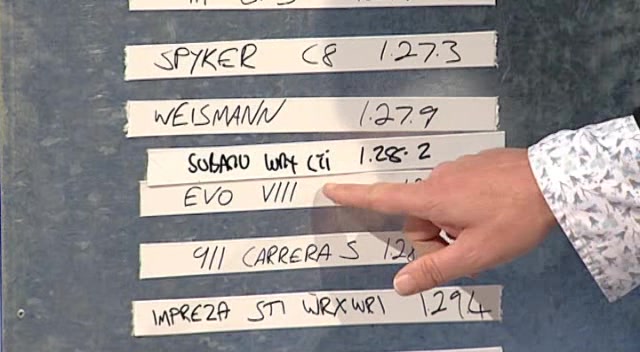 SPYKER C8 1.27.3
WEISMANN 1.27.9
SUBARU WRX CTi 1.28.2
EVO VIII
911 CARRERA S 128
IMPREZA STI WRXWR1 129.4